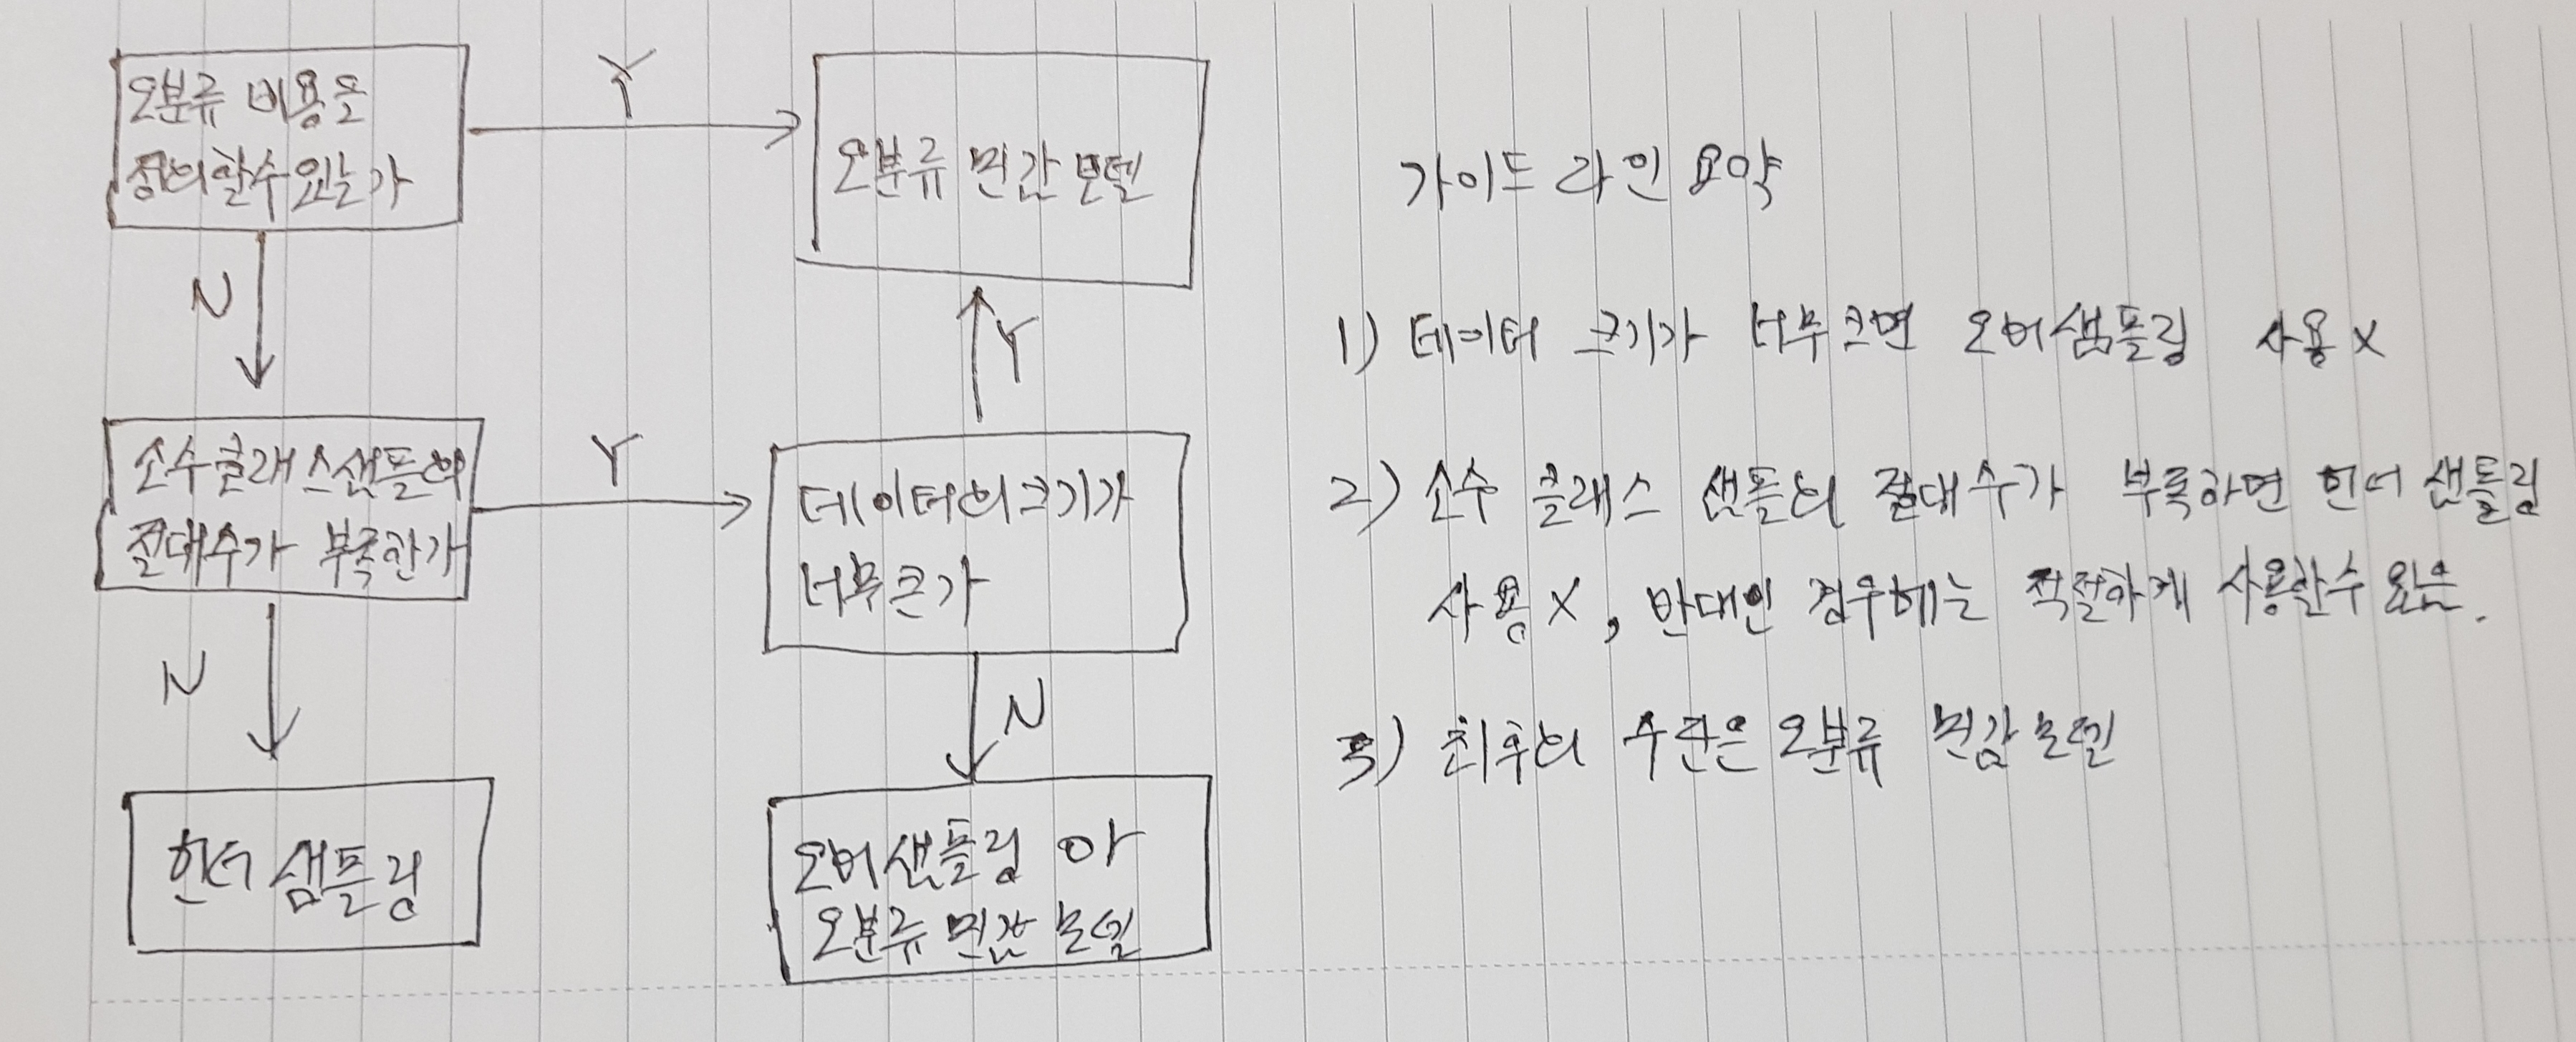 오분류 비용을
정의할수있는가
Y
오분류 민감 모델
N
Y
소수클래스샘플의
절대수가 부족한가
Y
데이터의크기가
너무큰가
N
N
언더 샘플링
오버샘플링 아
오분류 민감 모델
가이드 라인 요약
1) 데이터 크기가 너무크면 오버샘플링 사용 X
2) 소수 클래스 샘플의 절대수가 부족하면 언더샘플링
사용 X, 반대인 경우에는 적절하게 사용할수 있음.
3) 최후의 수단은 오분류 민감모델